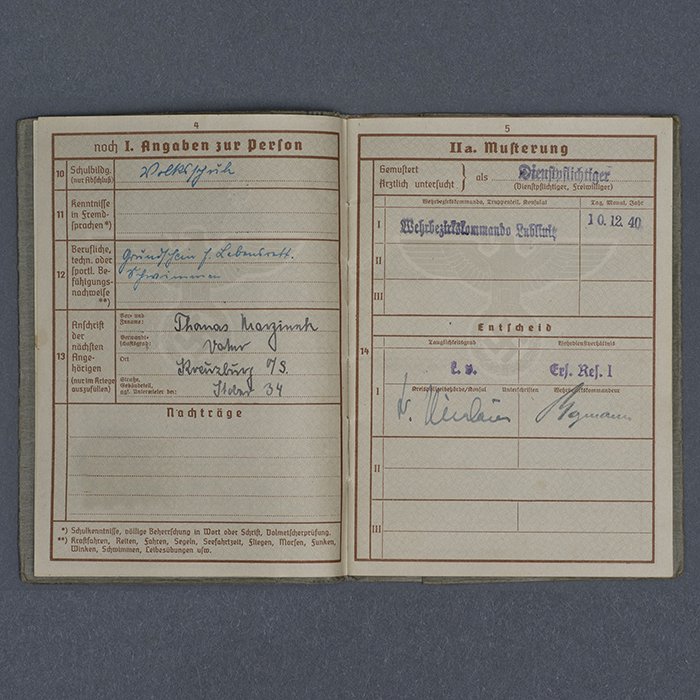 4
noch I. Angaben zur Person
10 Schulbildg. (nur Abschluß) Volksschule
11 Kenntnisse in Fremd-
sprachen *)
12 Berufliche,
techn. oder
sportl. Be-
fähigungs-
nachweise
**)
Grundschein f. Lebensrett.
Schwimmen
13 Anschrift
der
nächsten
Ange-
hörigen
(nur im Kriege
auszufüllen)
Vor- und
Zuname: Thomas
Verwandt-
schaftsgrad: Vater
Ort Kreuzburg O/S.
Straße,
Gebäudeteil,
ggf. Untermieter bei: 34
Nachträge
*) Schulkenntnisse, völlige Beherrschung in Wort oder Schrift, Dolmetscherprüfung.
**) Kraftfahren, Reiten, Fahren, Segeln, Seefahrtzeit, Fliegen, Morsen, Funken,
Winken, Schwimmen, Leibesübungen usw.
5
IIa. Musterung
Gemustert
Ärztlich untersucht } als Dienstpflichtiger
(Dienstpflichtiger, Freiwilliger)
Wehrbezirkskommando, Truppenteil, Konsulat Tag, Monat, Jahr
I Wehrbezirkskommando 10.12.40
II
III
14
Entscheid
Tauglichkeitsgrad Wehrdienstverhältnis
k. v. Ers. Res. I
Kreispolizeibehörde/Konsul Unterschriften Wehrbezirkskommandeur
I
II
III